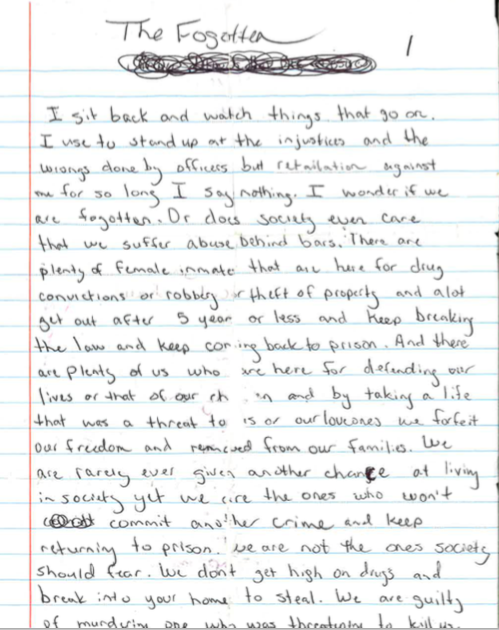 The Fogotten
1
I sit back and watch things that go on.
I use to stand up at the injustices and the
wrongs done by officers but retailation against
me for so long I say nothing. I wonder if we
are fogotten. Or does society even care
that we suffer abuse behind bars. There are
plenty of female inmate that are here for drug
convictions or robbery or theft of property and alot
get out after 5 year or less and keep breaking
the law and keep coming back to prison. And there
are plenty of us who are here for defending our
lives or that of our and by taking a life
that was a threat to us or our loveones we forfeit
our freedom and removed from our families. We
are rarely ever given another chance at living
in society yet we are the ones who won't
commit another crime and keep
returning to prison. We are not the ones society
should fear. We don't get high on drugs and
break into your home to steal. We are guilty
of murdering one who was threatening to kill us.